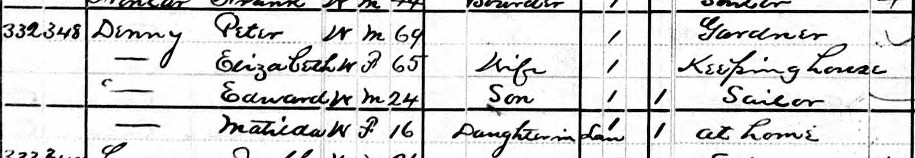 Frank W M 44 Boarder 1 Sailor
332 348 Denny Peter W M 69 1 Gardner
— Elizabeth W F 65 Wife 1 Keeping house
" — Edward W M 24 Son 1 1 Sailor
— Matilda W F 16 Daughter in Law 1 1 at home